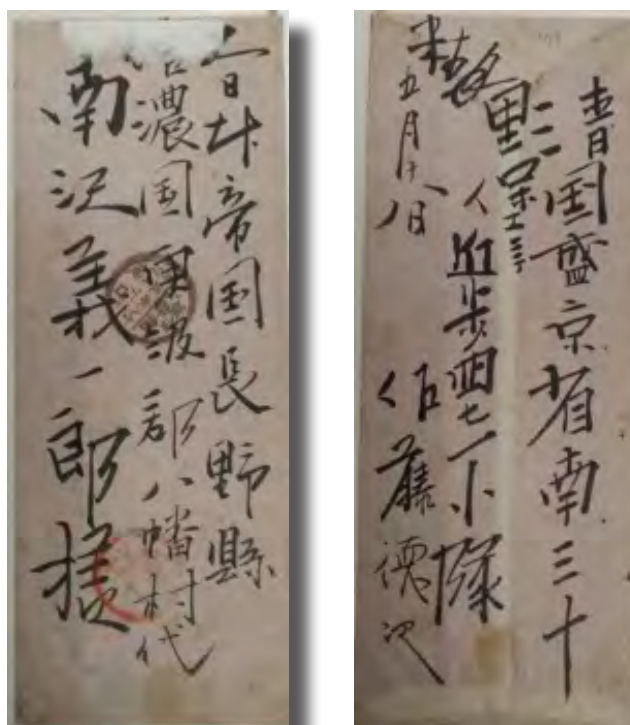 大日本帝国長野縣
信濃国更級郡八幡村代
南沢義一郎様
清国盛京省南三十
里
近歩四七一小隊
佐藤徳次
五月十八日